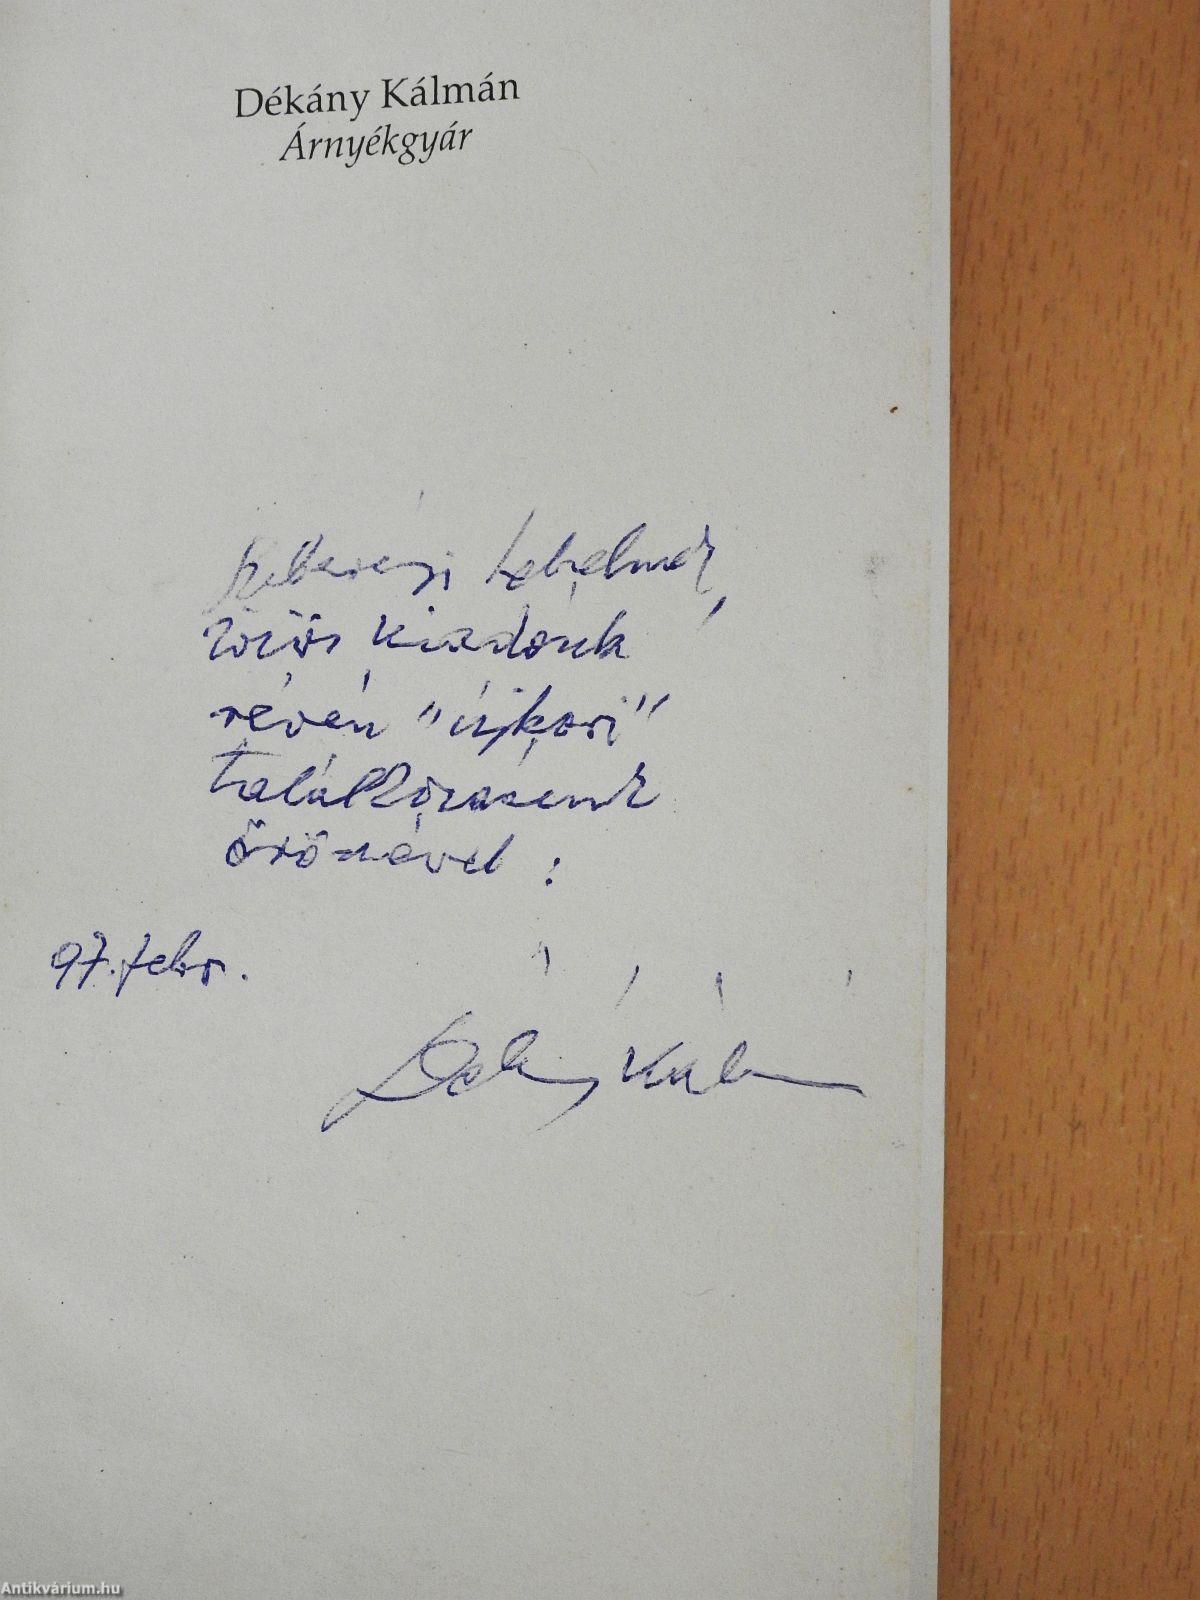 Dékány Kálmán
Árnyékgyár
Szeberényi Lehelnek,
közös kiadónk
révén "újkori"
találkozásunk
örömével:
97. febr.
Dékány Kálmán
Antikvárium.hu